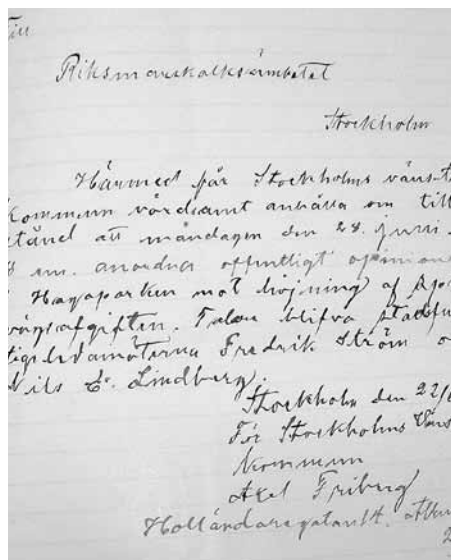 Till
Riksmarskalksämbetet
Stockholm
Härmed får Stockholms vänst
Kommun vördsamt anhålla om till
stånd att måndagen den 28. juni
8 em. anordna offentligt opinion
i Hagaparken mot höjning af
vägsafgiften. Talare blifva stadsfu
tigeledamöterna Fredrik Ström o
Nils C. Lindberg.
Stockholm den 22/6
För Stockholms Väns
Kommun
Axel Friberg
Holländaregatan